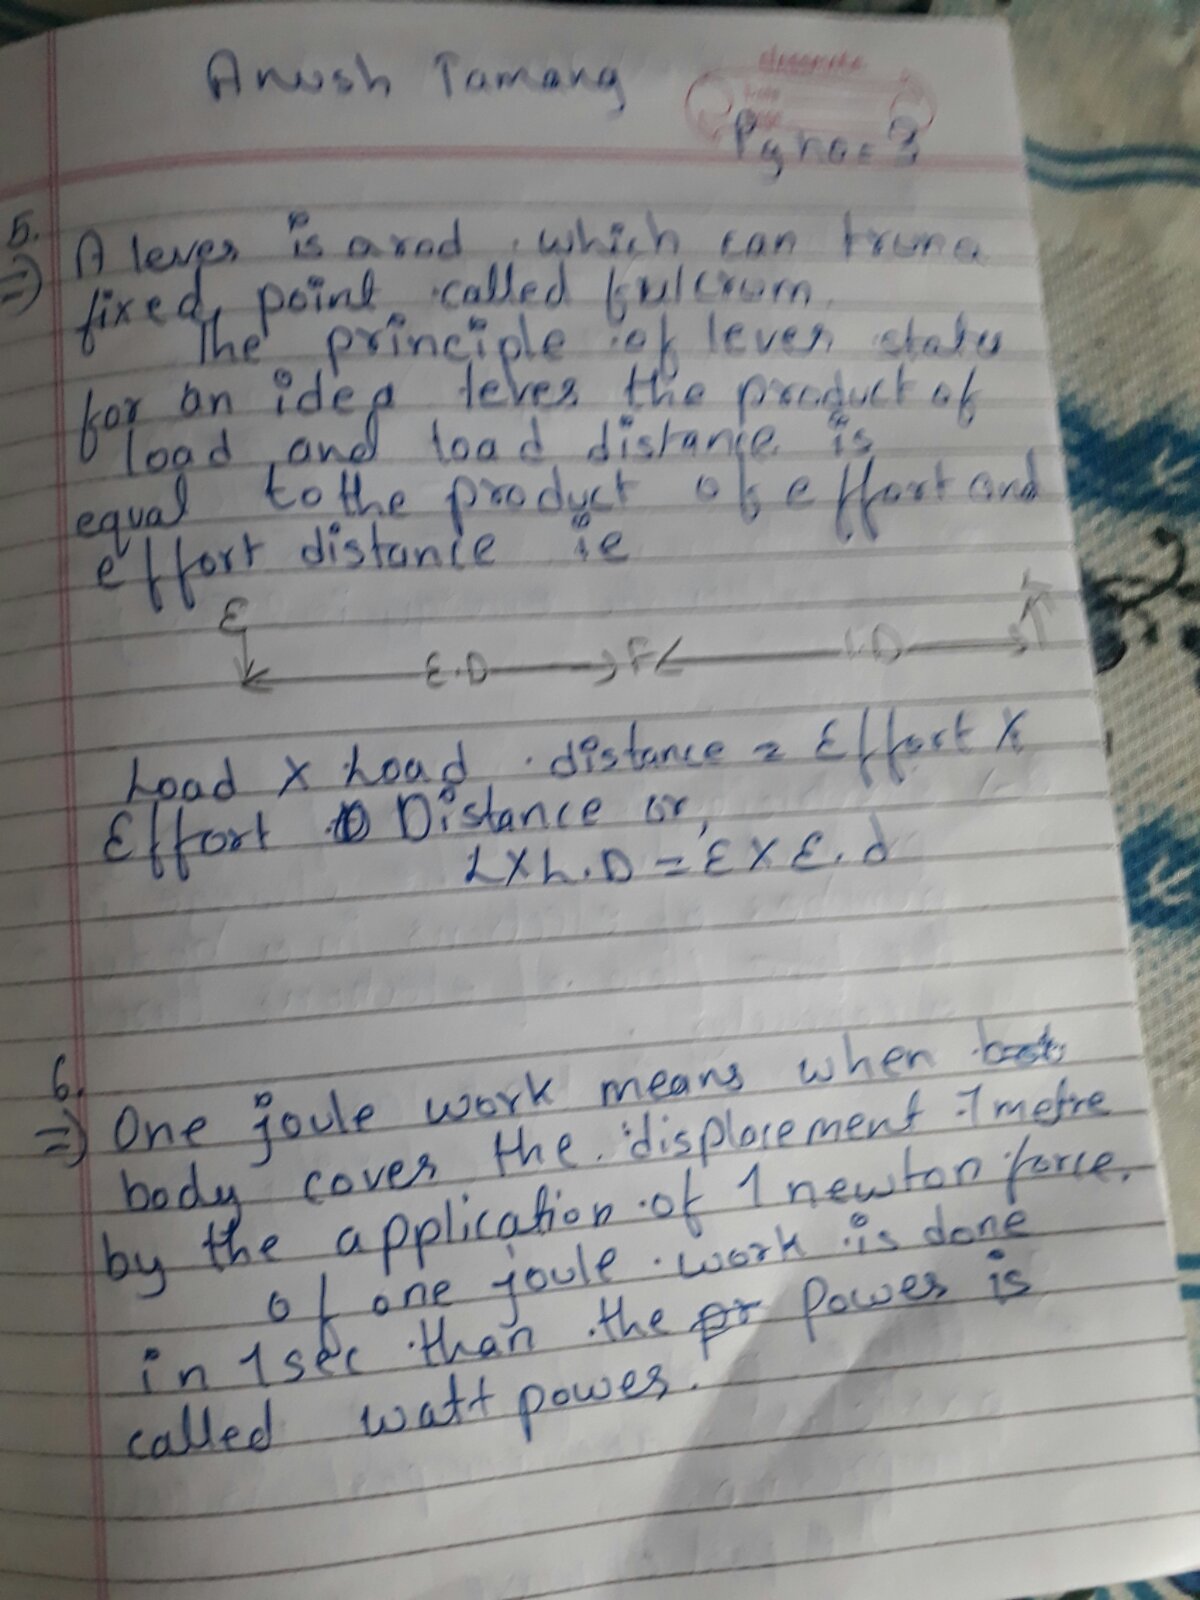 Anush Tamang
Pg no = 3
5.
=) A lever is a rod which can
fixed point called fulcrum
The principle of lever states
for an idea lever the product of
load and load distance is
equal to the product of effort and
effort distance ie
E
E.D F L.D
Load X Load distance = Effort X
Effort Distance or,
L X L.D = E X E.d
6.
=) One joule work means when
body cover the displacement 1 metre
by the application of 1 newton force.
of one joule work is done
in 1 sec than the power is
called watt power.